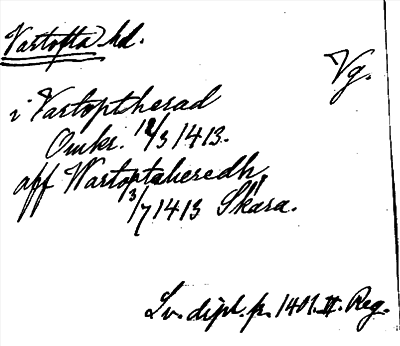 Vartofta hd.
Vg.
i Vartoptherad
Omkr. 12/3 1413.
aff Wartoptaheredh,
3/7 1413 Skara.
Sv. dipl. fr. 1401. II. Reg.